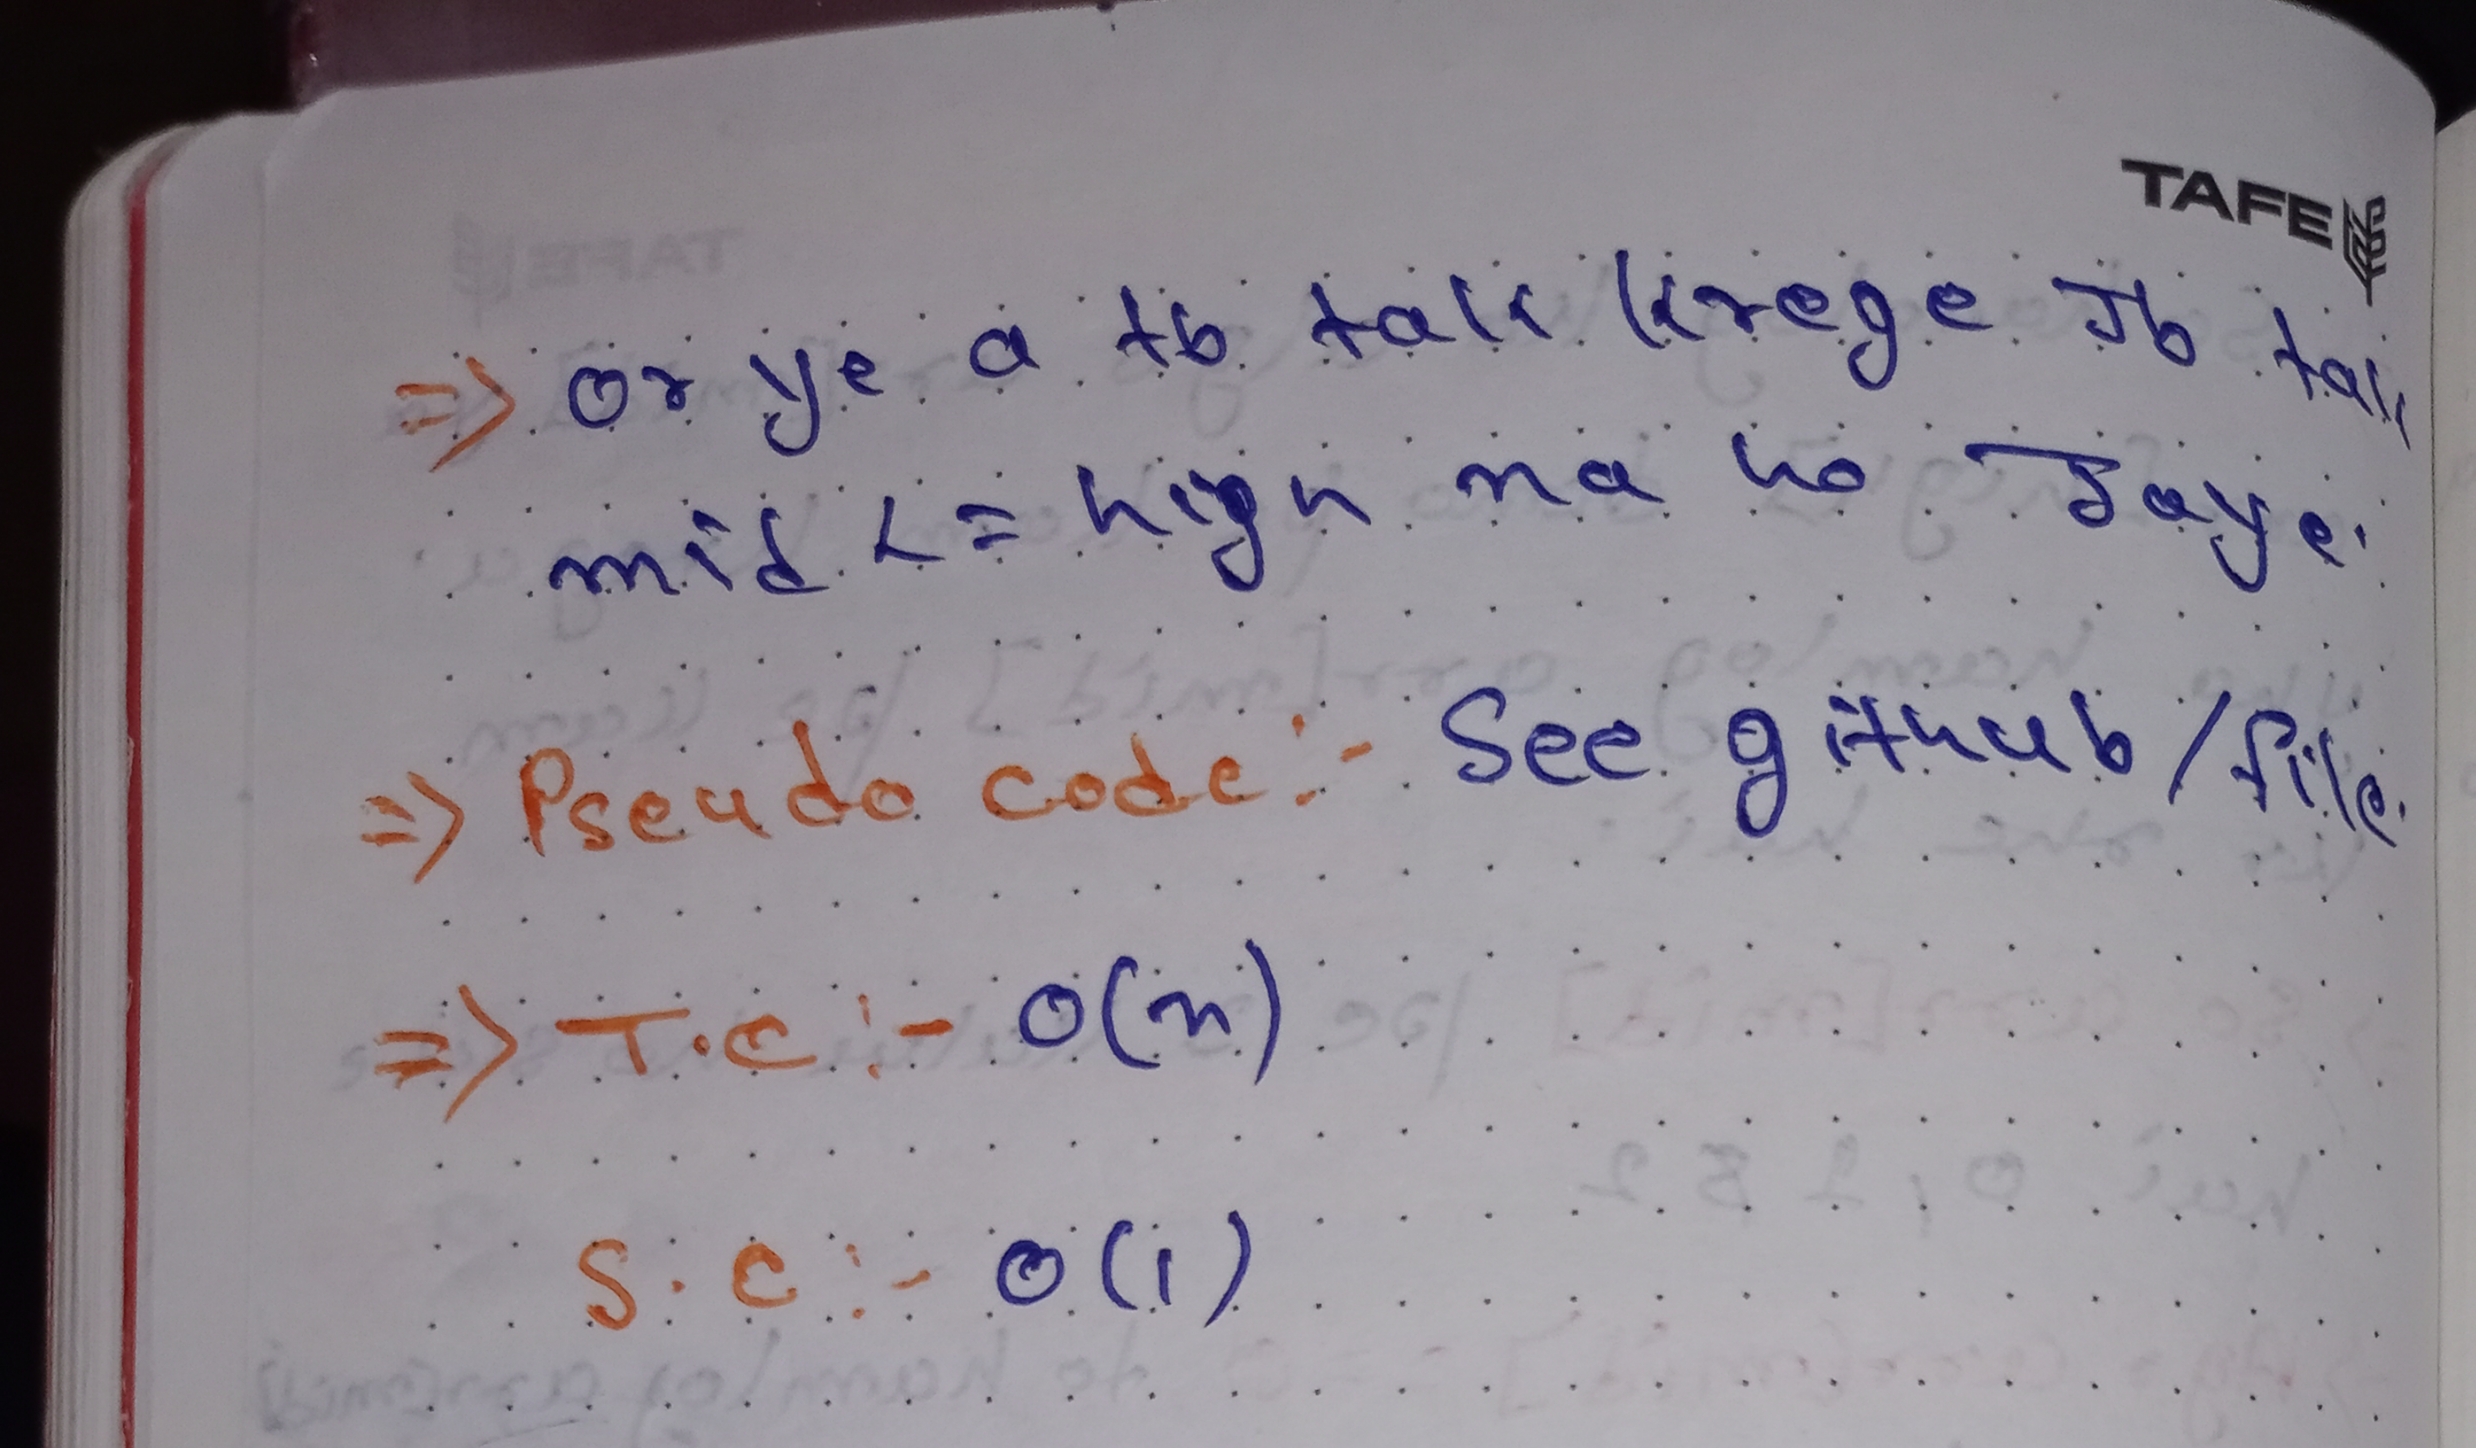 TAFE
=> or ye a tb tak krege Jb tak
mid <= high na ho Jaye.
=> Pseudo code :- See github/file.
=> T.C :- O(n)
S.C :- O(1)